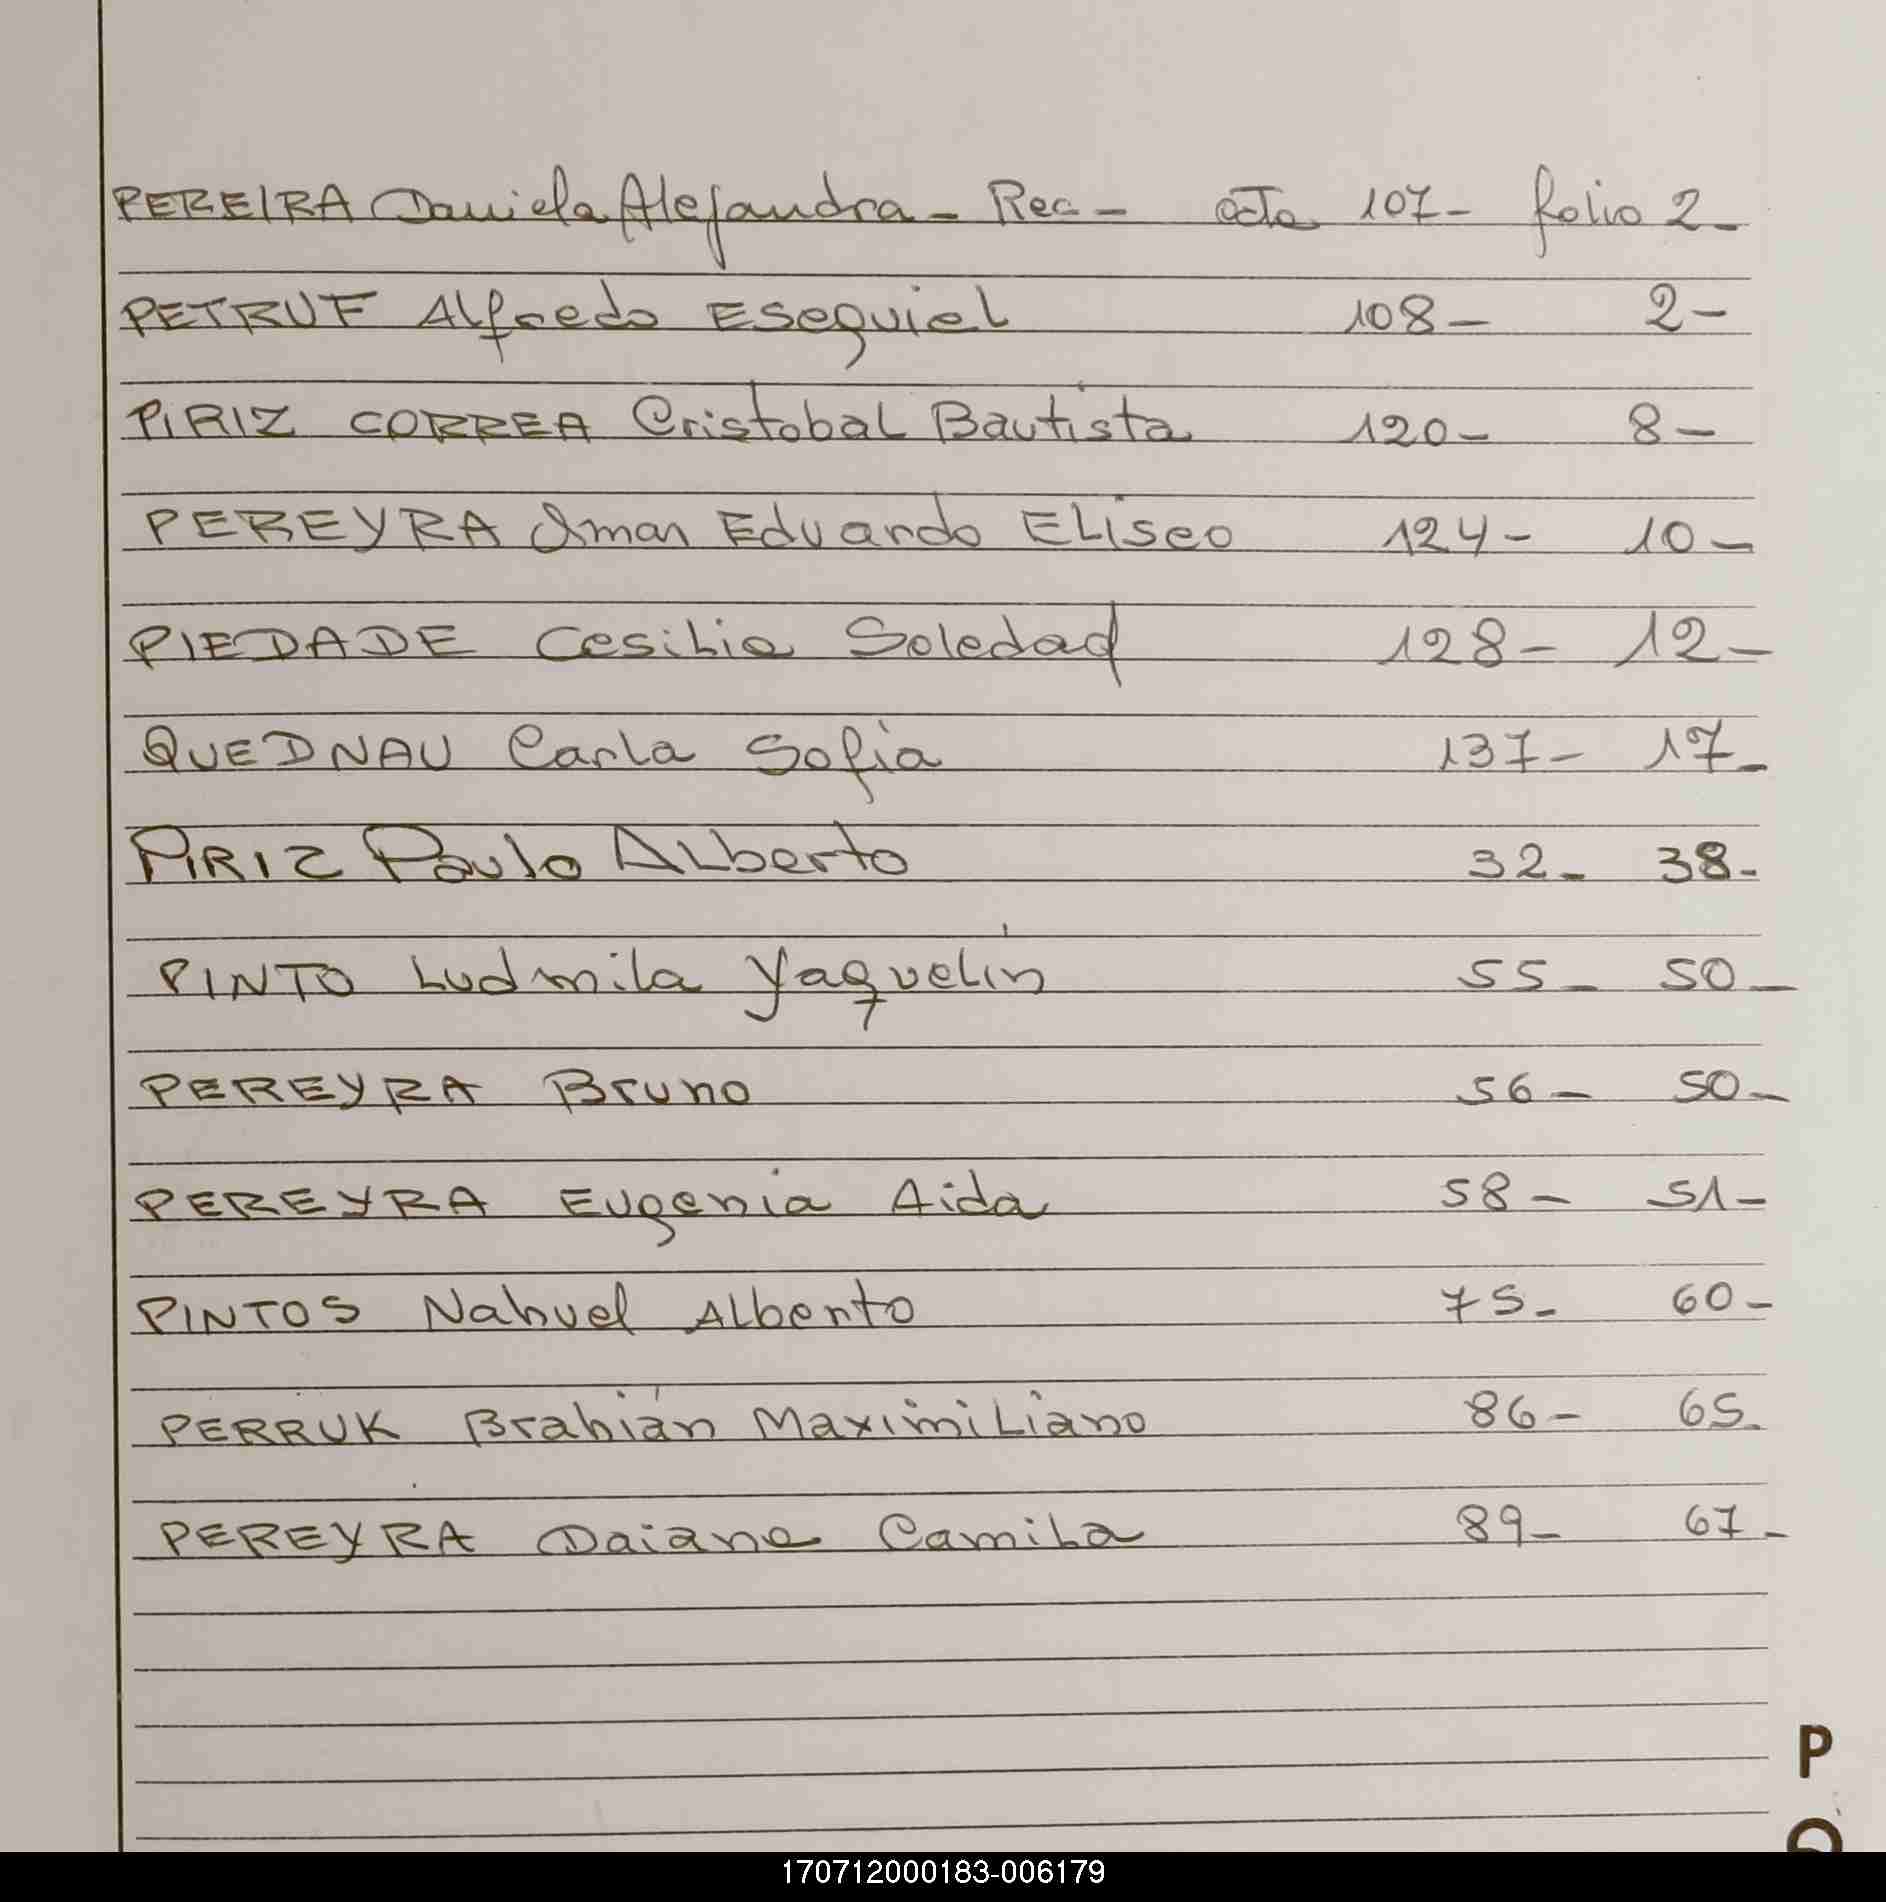 PEREIRA Daniela Alejandra - Rec - acta 107- folio 2-
PETRUF Alfredo Esequiel 108- 2-
PIRIZ CORREA Cristobal Bautista 120- 8-
PEREYRA Omar Eduardo Eliseo 124- 10-
PIEDADE Cesilia Soledad 128- 12-
QUEDNAU Carla Sofia 137- 17-
PIRIZ Paulo Alberto 32- 38-
PINTO Ludmila Yaquelín 55- 50-
PEREYRA Bruno 56- 50-
PEREYRA Eugenia Aida 58- 51-
PINTOS Nahuel Alberto 75- 60-
PERRUK Brahián Maximiliano 86- 65-
PEREYRA Daiana Camila 89- 67-
P
Q
170712000183-006179